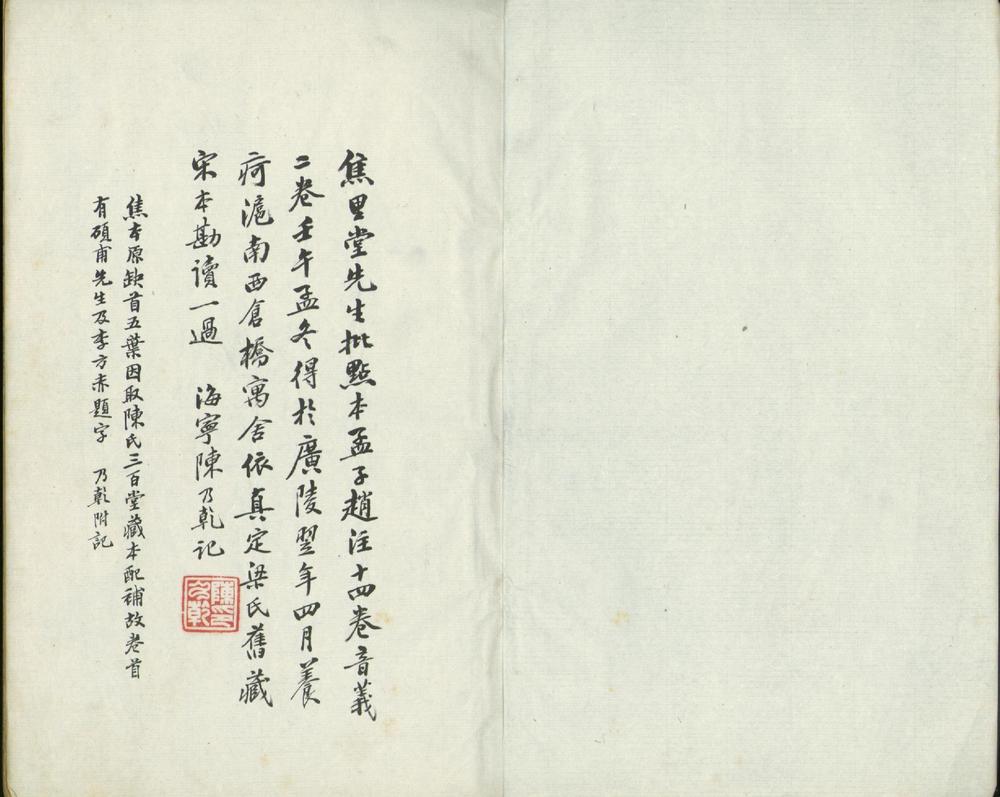 焦里堂先生批點本孟子趙注十四卷音義
二卷壬午孟冬得於廣陵翌年四月養
疴滬南西倉橋寓舍依真定梁氏舊藏
宋本勘讀一過 海寧陳乃乾記
陳乃乾印
焦本原缺首五葉因取陳氏三百堂藏本配補故卷首
有碩甫先生及李方赤題字 乃乾附記